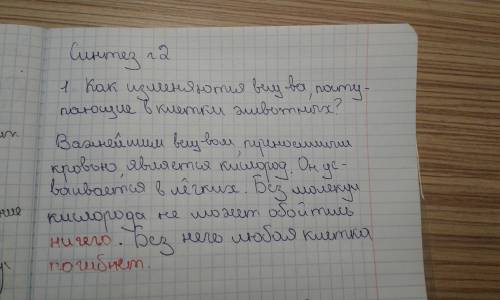 Синтез г2
1 Как изменяются вещ-ва, посту-
пающие в клетки животных?
Важнейшим вещ-вом, переносимым
кровью, является кислород. Он ус-
ваивается в лёгких. Без молекул
кислорода не может обойтись
ничего. Без него любая клетка
погибнет.